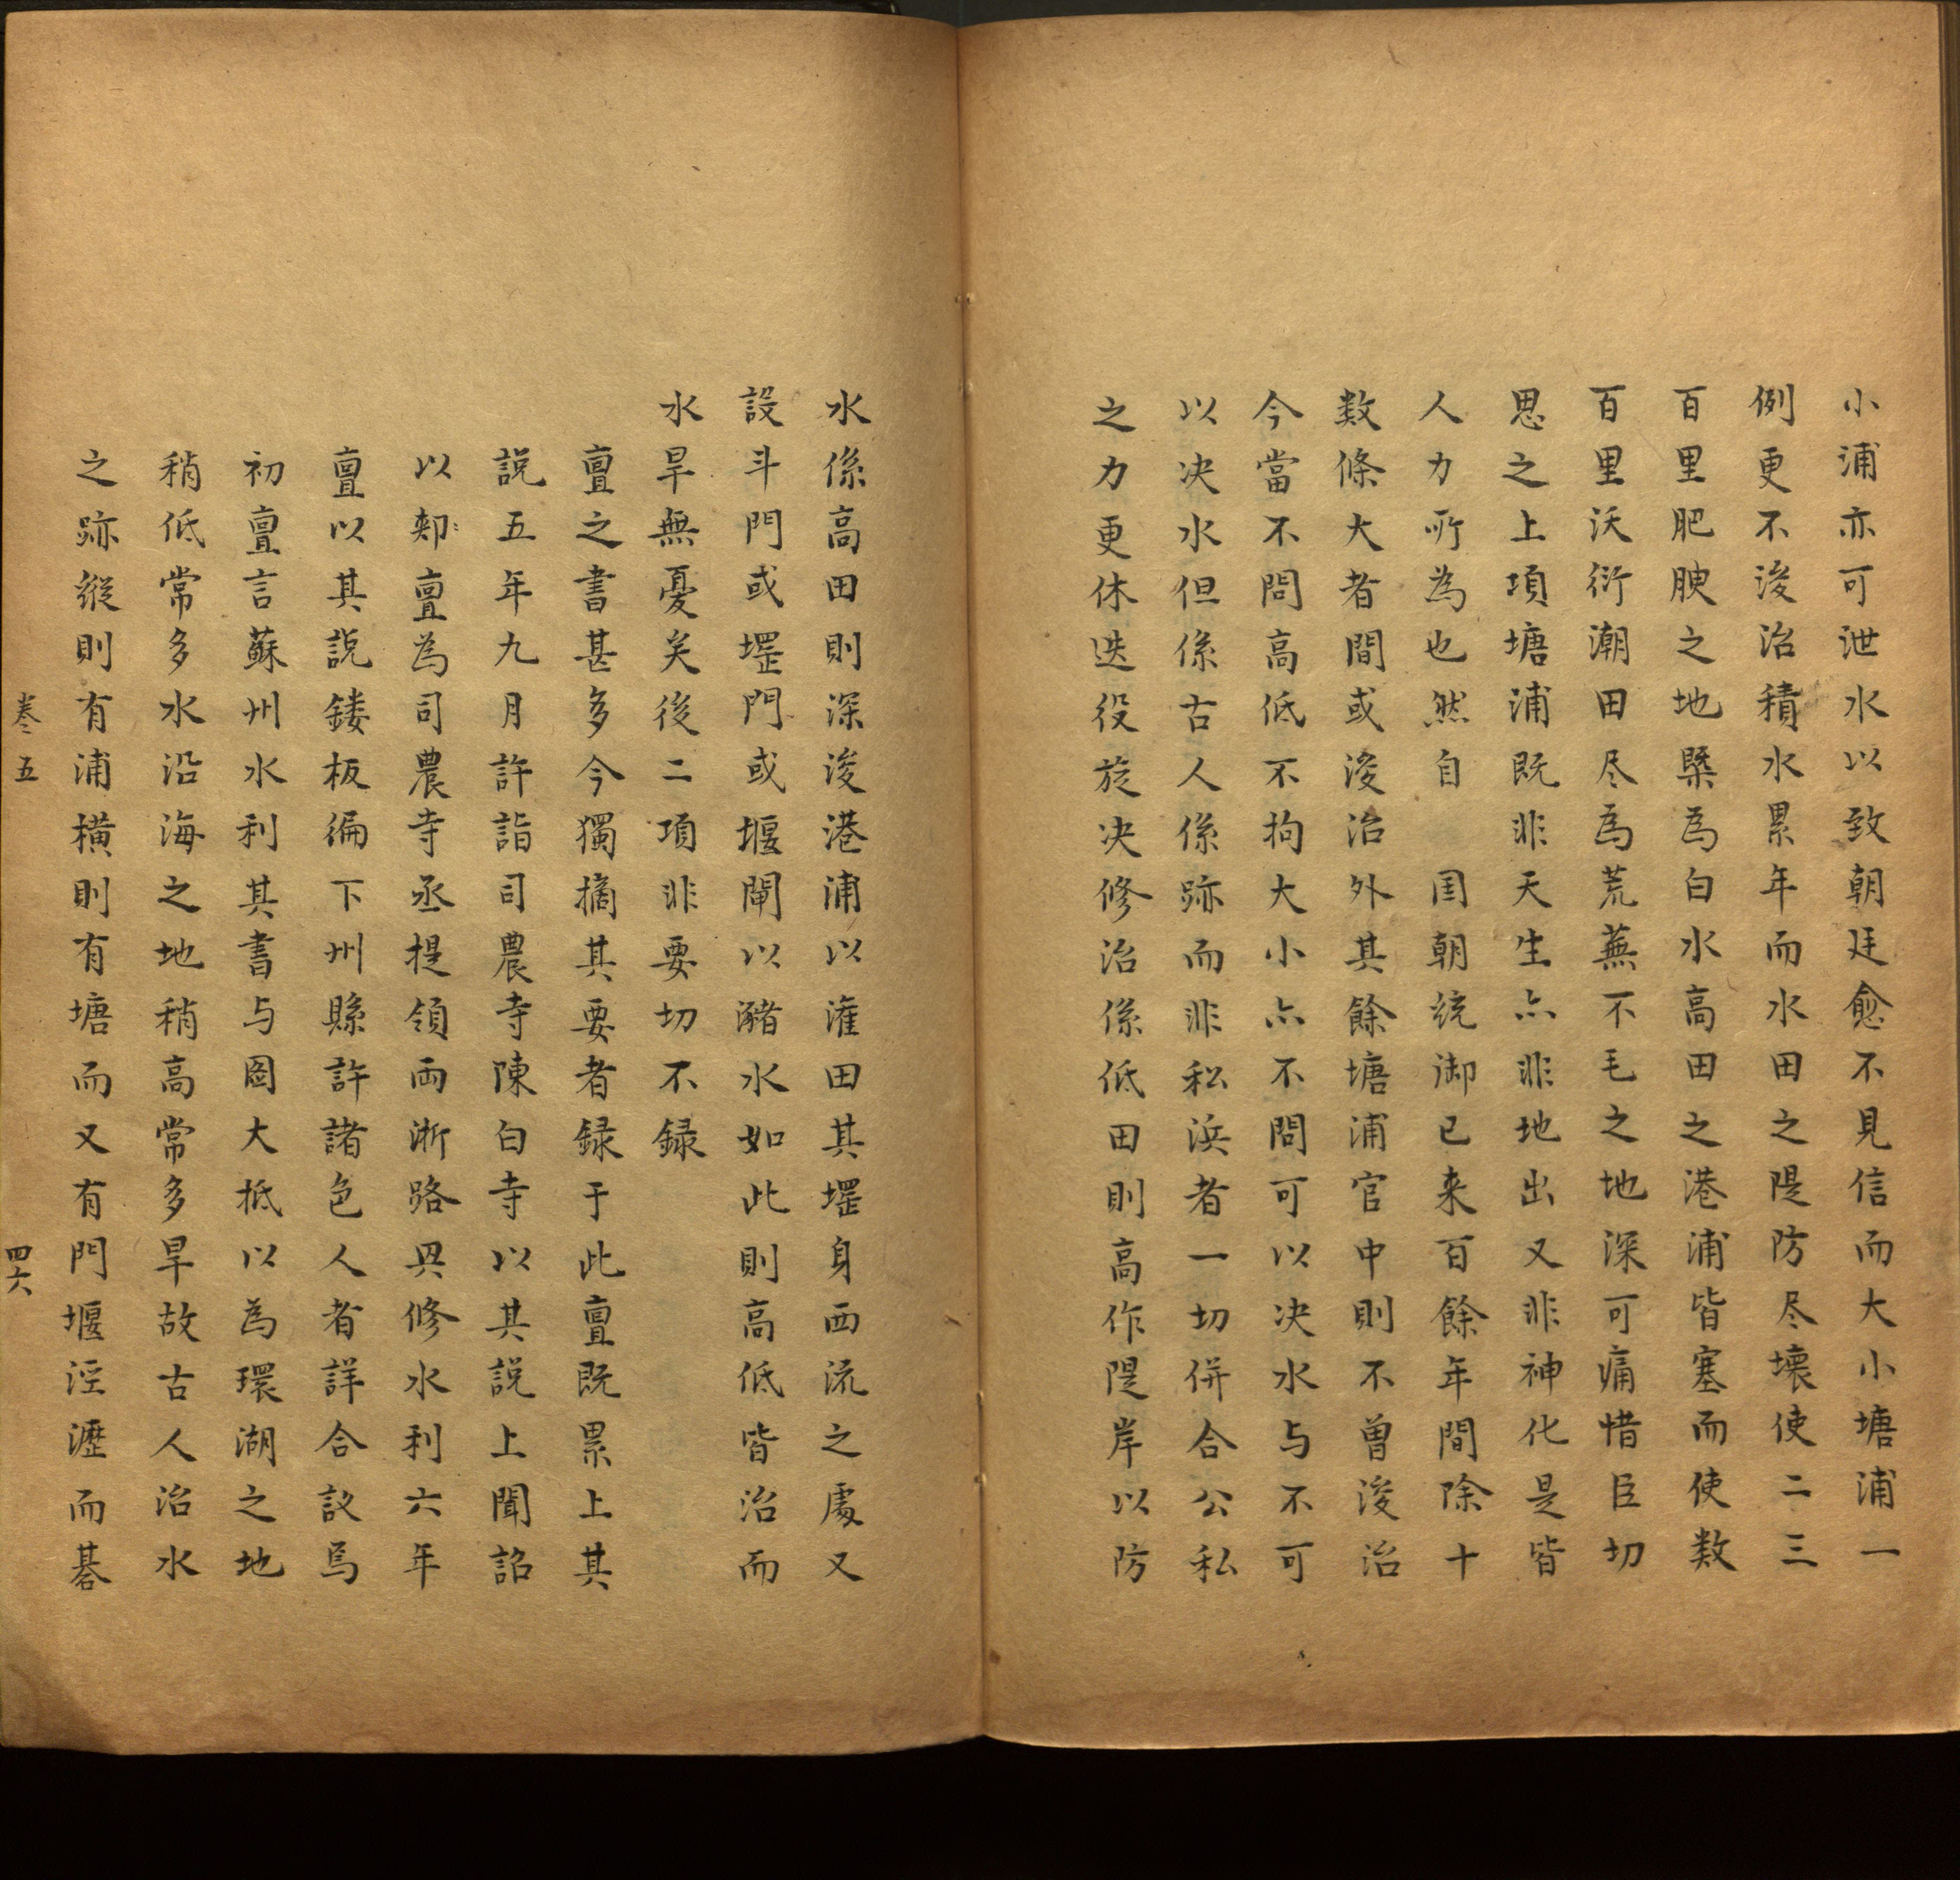 小浦亦可泄水以致朝廷愈不見信而大小塘浦一
例更不浚治積水累年而水田之隄防尽壊使二三
百里肥腴之地槩為白水高田之港浦皆塞而使数
百里沃衍潮田尽為荒蕪不毛之地深可痛惜臣切
思之上項塘浦既非天生亦非地出又非神化是皆
人力所為也然自　国朝統御已来百餘年間除十
数條大者間或浚治外其餘塘浦官中則不曽浚治
今當不問高低不拘大小亦不問可以决水与不可
以决水但係古人係跡而非私浜者一切併合公私
之力更休迭役旋决修治係低田則高作隄岸以防
水係高田則深浚港浦以灌田其堽身西流之處又
設斗門或堽門或堰閘以瀦水如此則高低皆治而
水旱無憂矣後二項非要切不録
亶之書甚多今獨摘其要者録于此亶既累上其
説五年九月許詣司農寺陳白寺以其説上聞詔
以郏亶為司農寺丞提領両淅路興修水利六年
亶以其説鏤板徧下州縣許諸色人者詳合議焉
初亶言蘇州水利其書与圖大抵以為環湖之地
稍低常多水沿海之地稍高常多旱故古人治水
之跡縱則有浦橫則有塘而又有門堰涇瀝而碁
卷五
四六